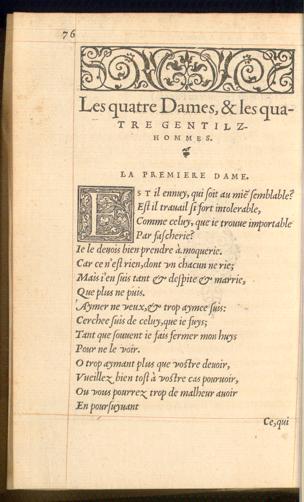 76
Les quatre Dames, & les qua-
TRE GENTILZ-
HOMMES.
LA PREMIERE DAME.
EST il ennuy, qui soit au miē semblable?
Est il trauail si fort intolerable,
Comme celuy, que ie trouue importable
Par fascherie?
Ie le deuois bien prendre à moquerie.
Car ce n'est rien, dont vn chacun ne rie;
Mais i'en suis tant & despite & marrie,
Que plus ne puis.
Aymer ne veux, & trop aymee suis:
Cerchee suis de celuy, que ie fuys;
Tant que souuent ie fais fermer mon huys
Pour ne le voir.
O trop aymant plus que vostre deuoir,
Vueillez bien tost à vostre cas pouruoir,
Ou vous pourrez trop de malheur auoir
En poursuyuant
Ce, qui